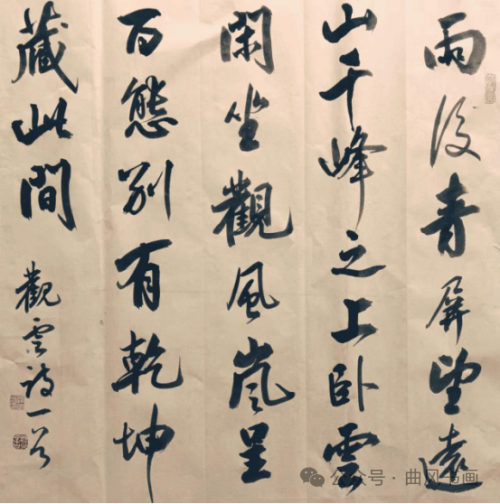 雨後青屏望遠
山千峰之上卧雲
閑坐觀風嵐呈
百態别有乾坤
藏此間
觀雲詩一首
公众号·曲风书画